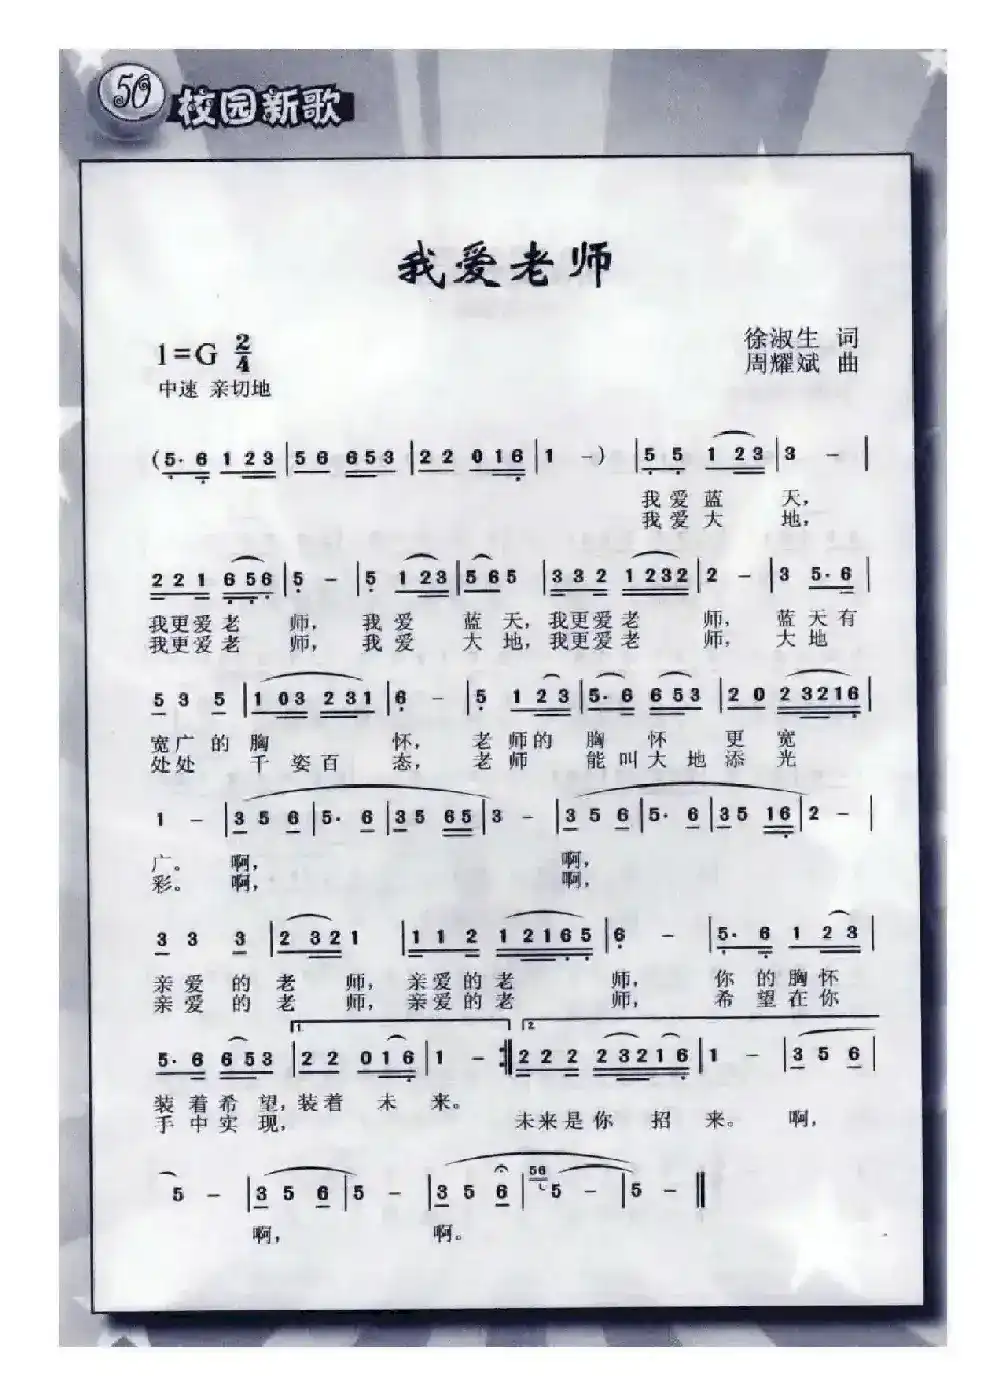 50 校园新歌
我爱老师
1=G 2/4
徐淑生 词
周耀斌 曲
中速 亲切地
(5· 6 1 2 3 | 5 6 6 5 3 | 2 2 0 1 6 | 1 - ) | 5 5 1 2 3 | 3 - |
我 爱 蓝 天,
我 爱 大 地,
2 2 1 6 5 6 | 5 - | 5 1 2 3 | 5 6 5 | 3 3 2 1 2 3 2 | 2 - | 3 5· 6 |
我更爱老 师, 我 爱 蓝 天,我更爱老 师, 蓝天有
我更爱老 师, 我 爱 大 地,我更爱老 师, 大 地
5 3 5 | 1 0 3 2 3 1 | 6 - | 5 1 2 3 | 5· 6 6 5 3 | 2 0 2 3 2 1 6 |
宽广 的 胸 怀, 老师的 胸 怀 更 宽
处处 千 姿 百 态, 老师 能叫大地添 光
1 - | 3 5 6 | 5· 6 | 3 5 6 5 | 3 - | 3 5 6 | 5· 6 | 3 5 1 6 | 2 - |
广。 啊, 啊,
彩。 啊, 啊,
3 3 3 | 2 3 2 1 | 1 1 2 1 2 1 6 5 | 6 - | 5· 6 1 2 3 |
亲 爱 的 老 师, 亲爱的 老 师, 你 的胸怀
亲 爱 的 老 师, 亲爱的 老 师, 希 望在你
1. 2.
5· 6 6 5 3 | 2 2 0 1 6 | 1 - :‖ 2 2 2 2 3 2 1 6 | 1 - | 3 5 6 |
装 着 希 望,装着 未 来。
手 中 实 现, 未来是你 招 来。 啊,
5 - | 3 5 6 | 5 - | 3 5 6 | 56 5 - | 5 - ‖
啊, 啊。